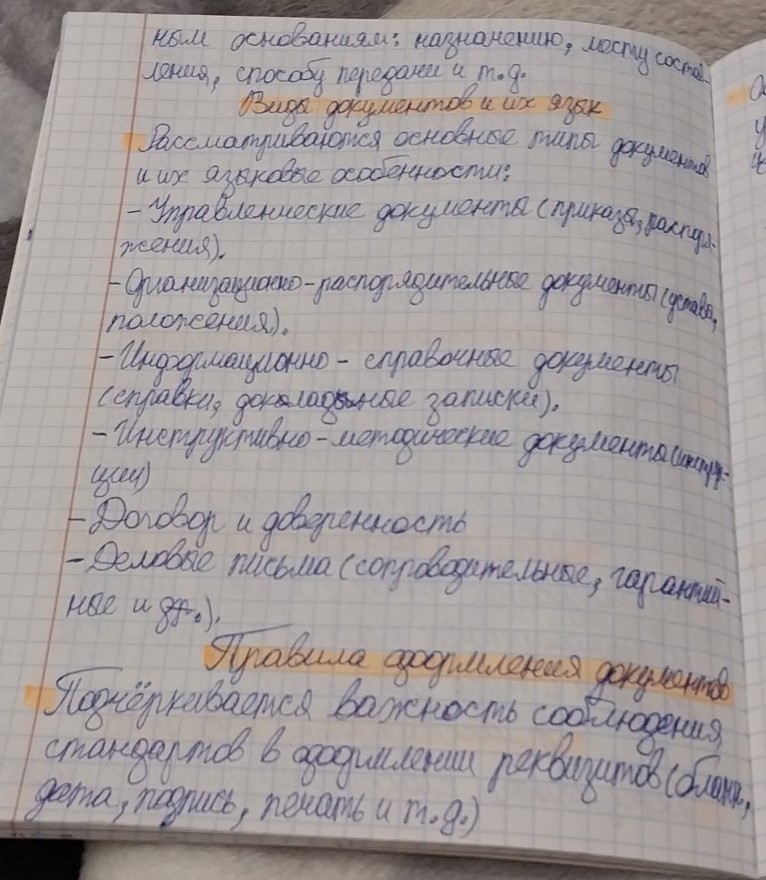 ным основаниям: назначению, месту состав-
ления, способу передачи и т.д.
Виды документов и их язык
Рассматриваются основные типы документов
и их языковые особенности:
- Управленческие документы (приказы, распоря-
жения).
- Организационно-распорядительные документы (уставы,
положения).
- Информационно - справочные документы
(справки, докладные записки).
- Инструктивно-методические документы (инструк-
ции)
- Договор и доверенность
- Деловые письма (сопроводительные, гарантий-
ные и др.).
Правила оформления документов
Подчёркивается важность соблюдения
стандартов в оформлении реквизитов (бланк,
дата, подпись, печать и т.д.)